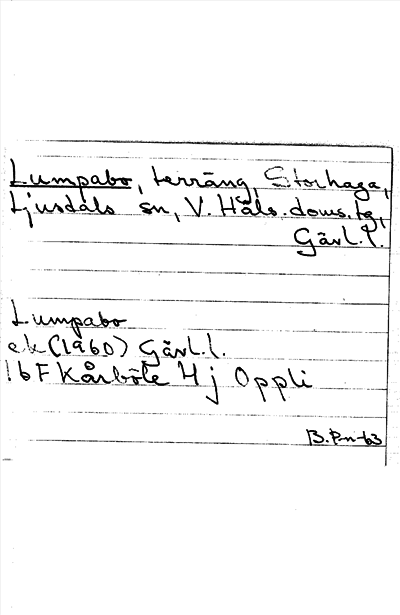 Lumpabo, terräng, Storhaga,
Ljusdals sn, V. Häls. doms.tg,
Gävl.l.
Lumpabo
ek (1960) Gävl.l.
16F Kårböle 4 j Oppli
B.Pn-63